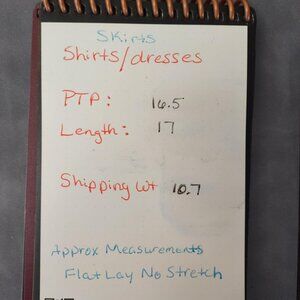 Skirts
Shirts/dresses
PTP: 16.5
Length: 17
Shipping wt 10.7
Approx Measurements
Flat Lay No Stretch